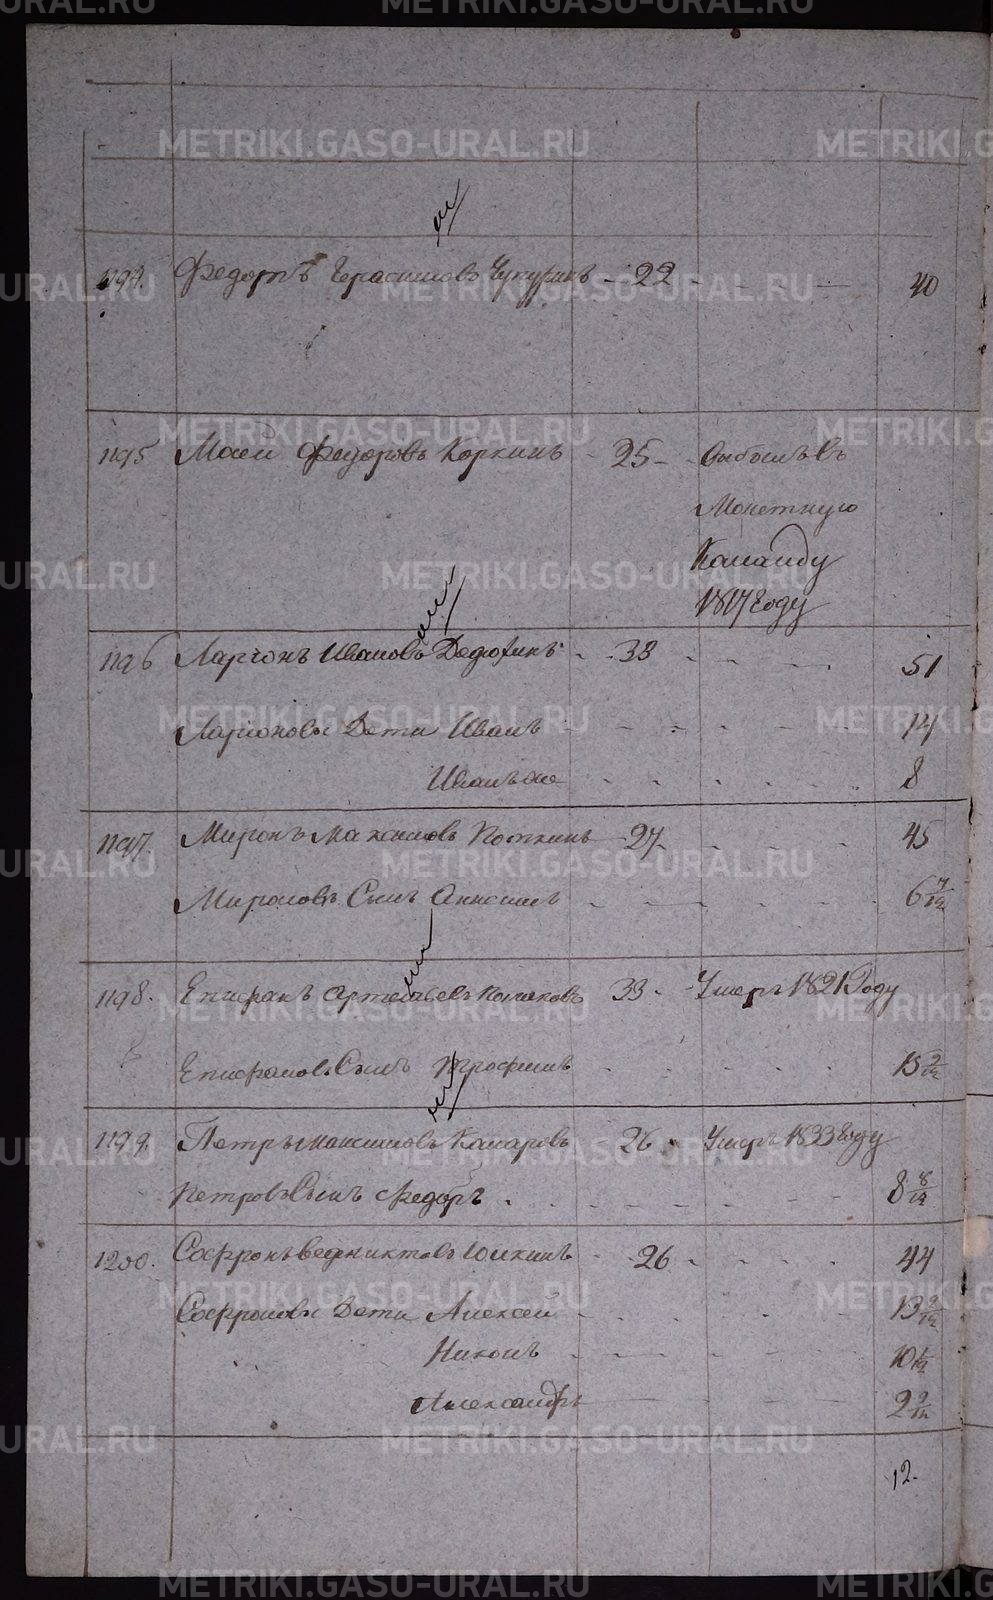 METRIKI.GASO-URAL.RU
1194. Федоръ Герасимовъ Чукуринъ - 22 - 40
1195 Федоровъ Коркинъ - 25 - въ
Монетную
Команду
1817 Году
1196 Ларіонъ Ивановъ Дедюхинъ - 33 51
Ларіоновы Дети Иванъ 14
Иванъ же 8
1197. Миронъ Максимовъ 27 45
Мироновъ Сынъ 6 7/12
1198. Епифанъ Артемьевъ 33 - Умеръ 1821 Году
Епифановъ Сынъ Трофимъ 15 2/12
1199. Петръ Максимовъ Камаровъ 26 - Умеръ 1833 Году
Петровъ Сынъ Федоръ 8 8/12
1200. Софронъ 26 - 44
Софроновы Дети Алексей 13 9/12
Никонъ 10
Александръ 2
12.